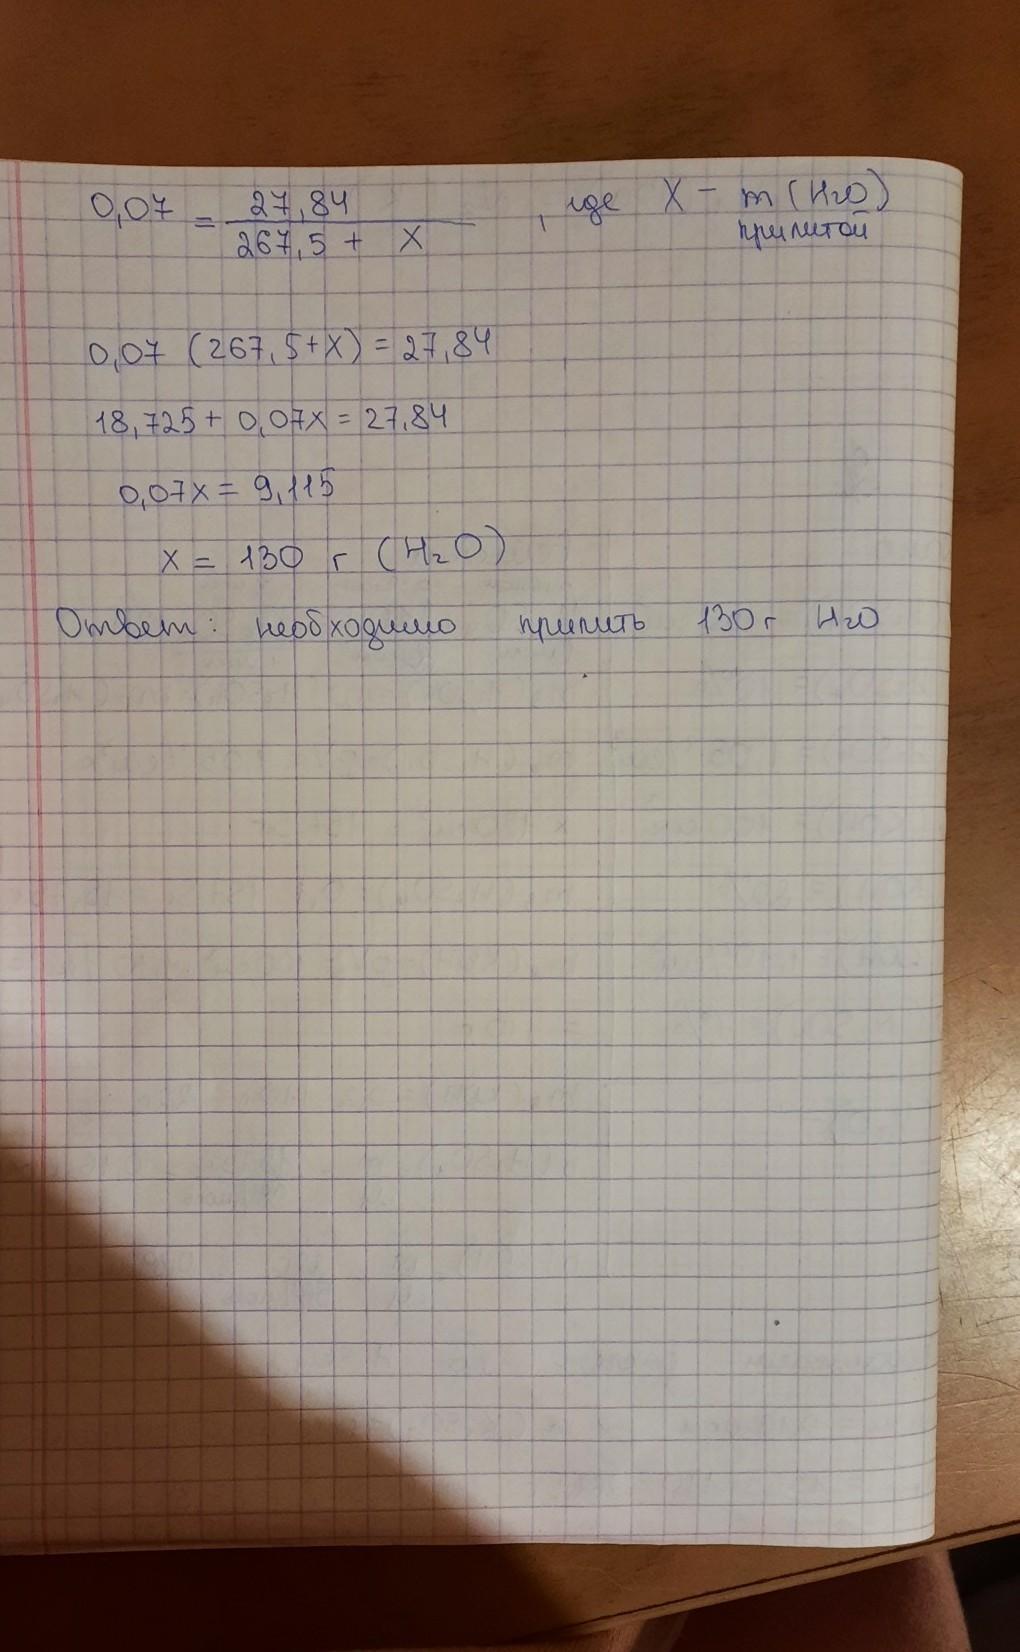 0,07 = 27,84 / 267,5 + X , где X – m (H₂O) прилитой
0,07 (267,5+X) = 27,84
18,725 + 0,07x = 27,84
0,07x = 9,115
x = 130 г (H₂O)
Ответ: необходимо прилить 130 г H₂O